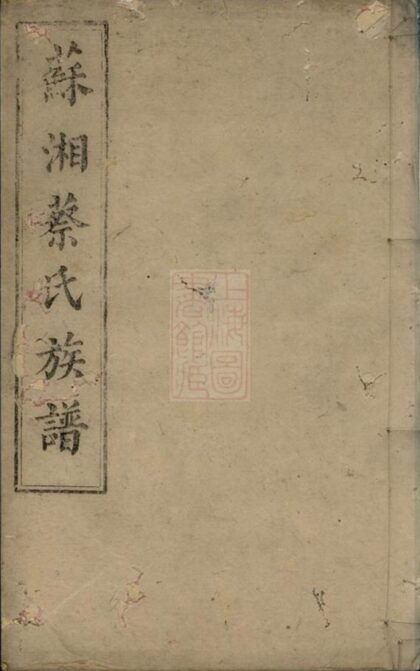 蘇湘蔡氏族譜
上海圖
書館